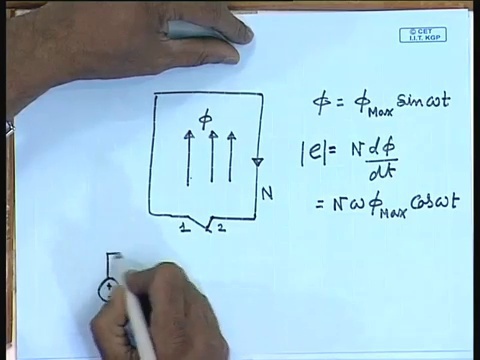 © CET
I.I.T. KGP
ϕ
N
1 2
+
ϕ = ϕMax sinωt
|e| = N dϕ/dt
= NωϕMax Cosωt